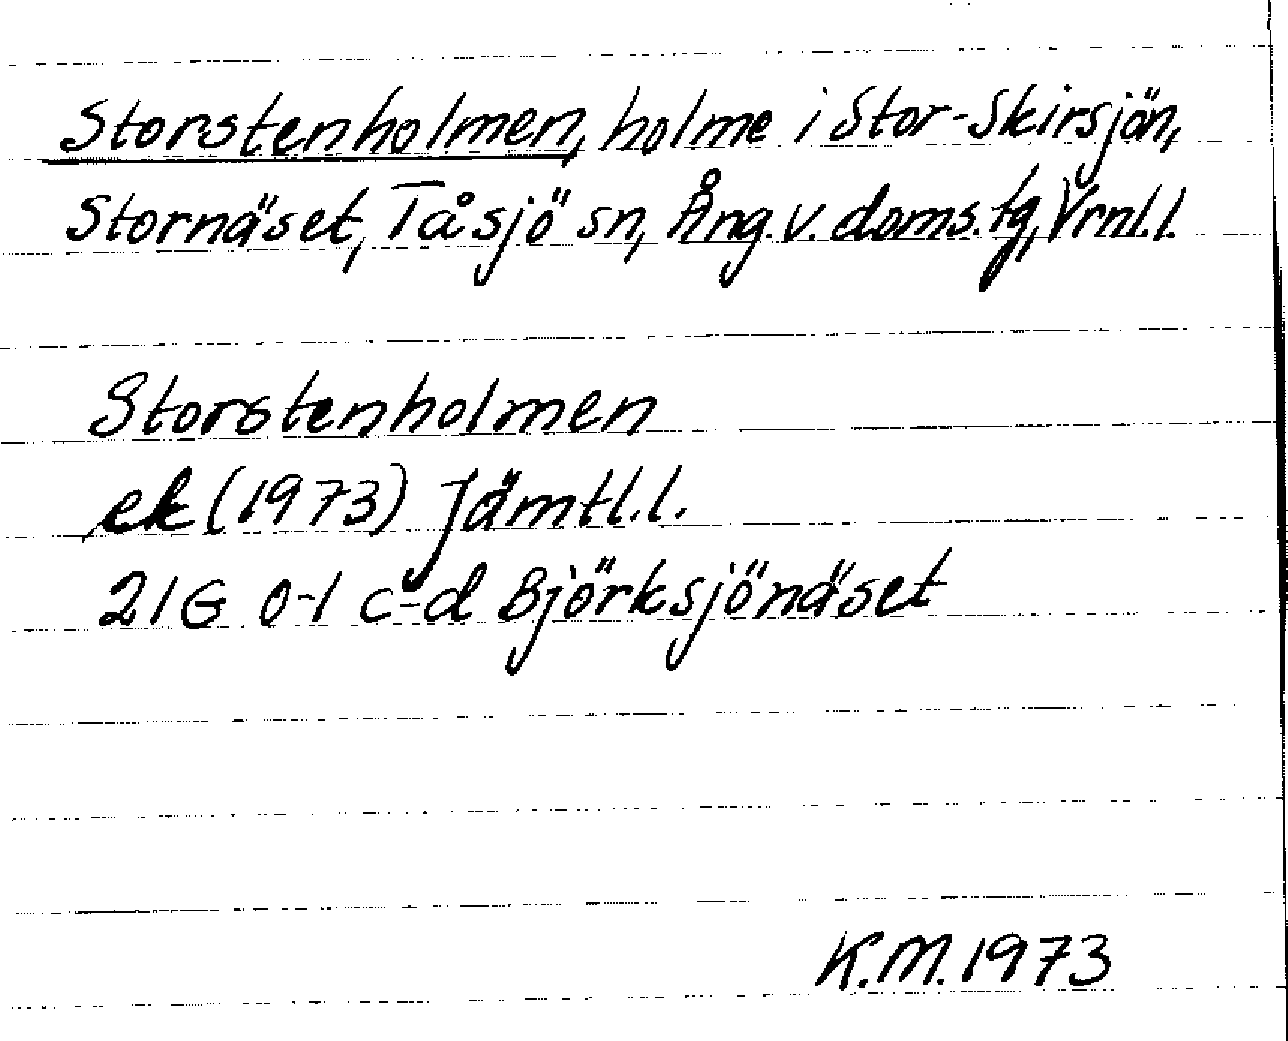 Storstenholmen, holme i Stor-Skirsjön,
Stornäset, Tåsjö sn, Ång. v. doms.tg, Vrnl.l.
Storstenholmen
ek (1973) Jämtl.l.
21G 0-1 c-d Björksjönäset
K.M. 1973